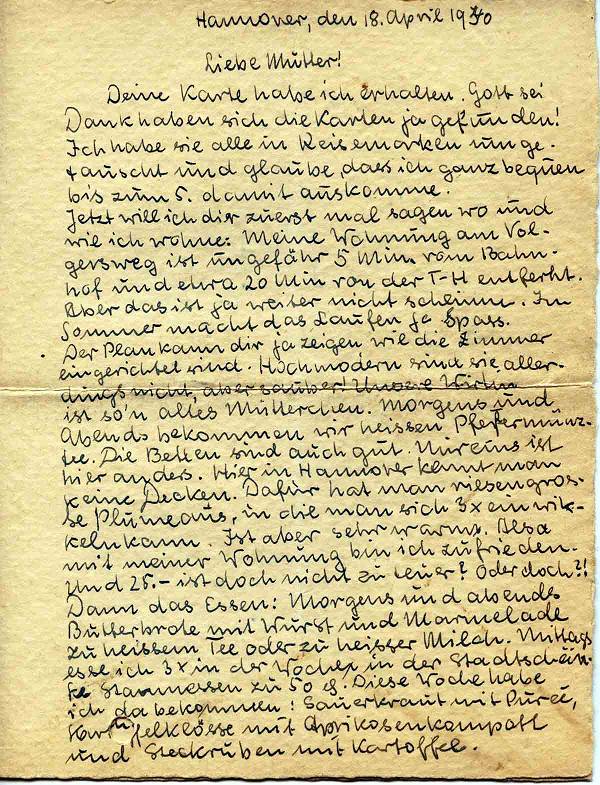 Hannover, den 18. April 1940
Liebe Mutter!
Deine Karte habe ich erhalten. Gott sei
Dank haben sich die Karten ja gefunden!
Ich habe sie alle in Reisemarken umge-
tauscht und glaube, dass ich ganz bequem
bis zum 5. damit auskomme.
Jetzt will ich dir zuerst mal sagen wo und
wie ich wohne: Meine Wohnung am Vol-
gersweg ist ungefähr 5 Min. vom Bahn-
hof und etwa 20 Min von der T-H entfernt.
Aber das ist ja weiter nicht schlimm. Im
Sommer macht das Laufen ja Spass.
Der Plan kann dir ja zeigen wie die Zimmer
eingerichtet sind. Hochmodern sind sie aller-
dings nicht, aber sauber! Unsere Wirtin
ist so'n altes Mütterchen. Morgens und
Abends bekommen wir heissen Pfefferminz-
tee. Die Betten sind auch gut. Nur eins ist
hier anders. Hier in Hannover kennt man
keine Decken. Dafür hat man riesengros-
se Plumeaus, in die man sich 3x einwik-
keln kann. Ist aber sehr warm. Also
mit meiner Wohnung bin ich zufrieden.
Und 25.- ist doch nicht zu teuer? Oder doch?!
Dann das Essen: Morgens und abends
Butterbrote mit Wurst und Marmelade
zu heissem Tee oder zu heisser Milch. Mittags
esse ich 3x in der Woche in der Stadtschän-
ke Stammessen zu 50 . Diese Woche habe
ich da bekommen: Sauerkraut mit Püree,
Kartoffelklösse mit Aprikosenkompott
und Steckrüben mit Kartoffel.